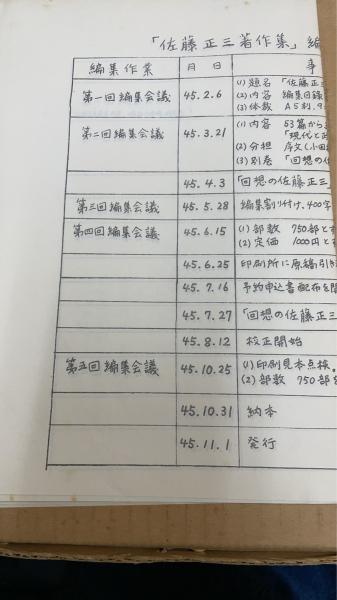 「佐藤正三著作集」編
編集作業 月日 事
第一回編集会議 45.2.6 (1) 題名 「佐藤正三
(2) 内容 編集目録
(3) 体裁 A5判.9
第二回編集会議 45.3.21 (1) 内容 53篇から
「現代と
(2) 分担 序文(小田
(3) 別巻 「回想の佐
45.4.3 「回想の佐藤正三
第三回編集会議 45.5.28 編集割り付け.400字
第四回編集会議 45.6.15 (1) 部数 750部とす
(2) 定価 1000円と
45.6.25 印刷所に原稿引き
45.7.16 予約申込書配布を開
45.7.27 「回想の佐藤正三
45.8.12 校正開始
第五回編集会議 45.10.25 (1) 印刷見本点検.
(2) 部数 750部を
45.10.31 納本
45.11.1 発行